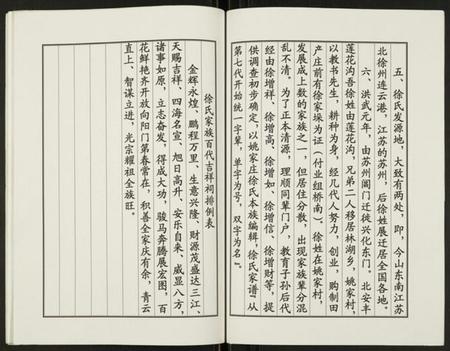 五、徐氏发源地，大致有两处，即，今山东南江苏
北徐州连云港，江苏的苏州，后徐姓展迁居全国各地。
六、洪武元年，由苏州阊门迁徙兴化东门。北安丰
莲花沟吾徐姓由莲花沟，兄弟二人移居林湖乡，姚家村，
以教书先生，耕种为身，经几代人努力，创业，购制田
产庄前有徐家垛为证（付业组桥南）。徐姓在姚家村，
发展成上数的家族之一，但居住分散，出现家族辈分混
乱不清。为了正本清源，理顺同辈门户，教育子孙后代
经由徐增祥、徐增高、徐增如、徐增信、徐增财等，提
供调查初步确定，以姚家庄徐氏本族编辑，徐氏家谱"从
第七代开始统一字辈，单字为号，双字为名"。
徐氏家族百代吉祥祠排例表
金辉永煌、鹏程万里、生意兴隆、财源茂盛达三江、
天赐吉祥、四海名宣、旭日高升、安乐自来、威显八方，
诸事如原，立志奋发、得成大功，骏马奔腾展宏图，百
花鲜艳齐开放向阳门第春常在，积善全家庆有余，青云
直上、智谋立进，光宗耀祖全族旺。